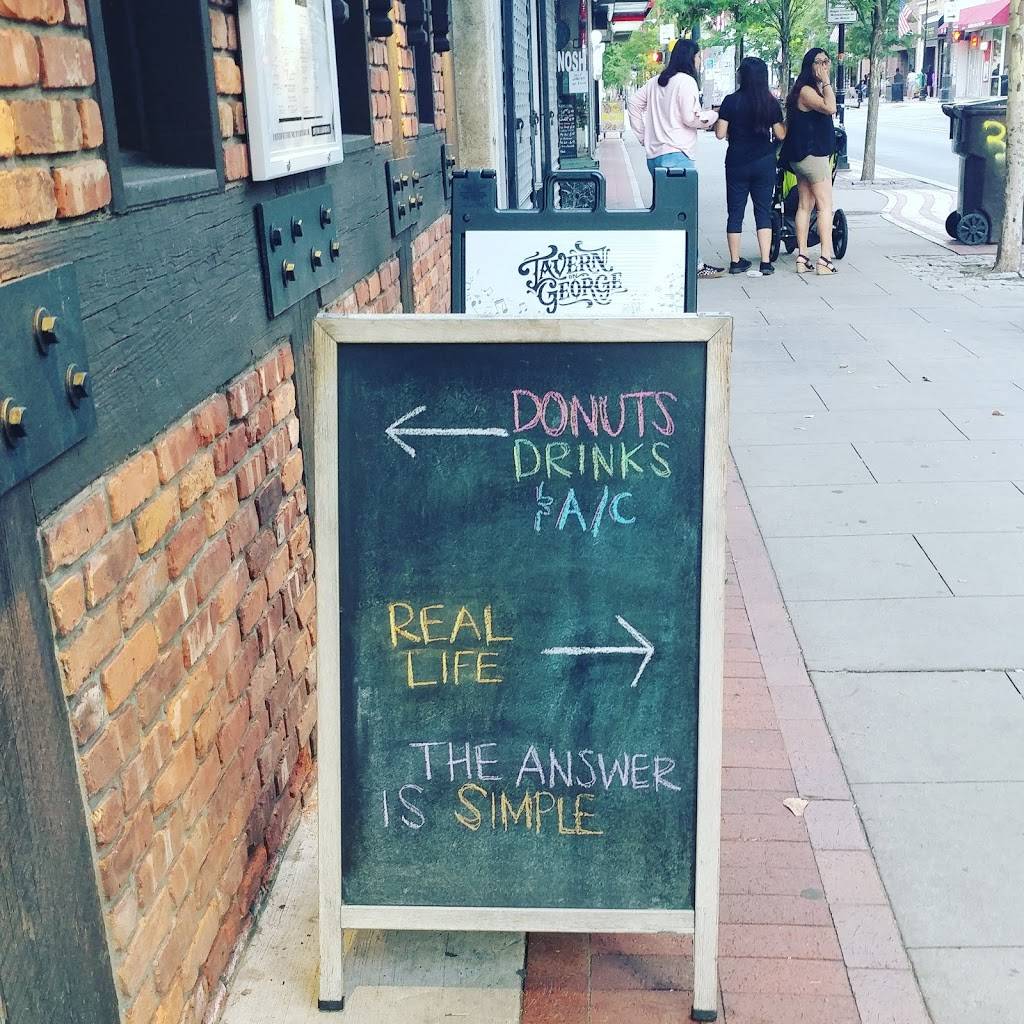 NOSH
TAVERN
ON
GEORGE
DONUTS
DRINKS
& A/C
REAL
LIFE
THE ANSWER
IS SIMPLE